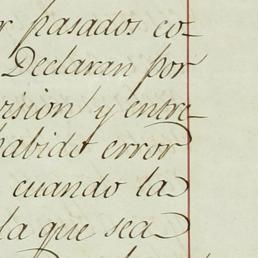 r pasados co-
Declaran por
rision y entre-
habido error
cuando la
la que sea